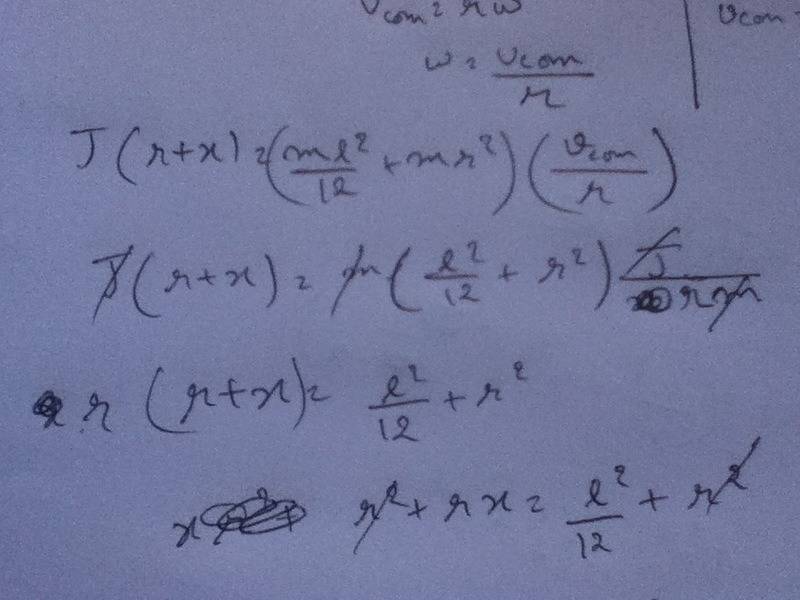 v_com = rω
v_com =
ω = v_com/r
J(r+x) = (ml²/12 + mr²)(v_com/r)
J(r+x) = m(l²/12 + r²) J/rm
r(r+x) = l²/12 + r²
x r² + rx = l²/12 + r²